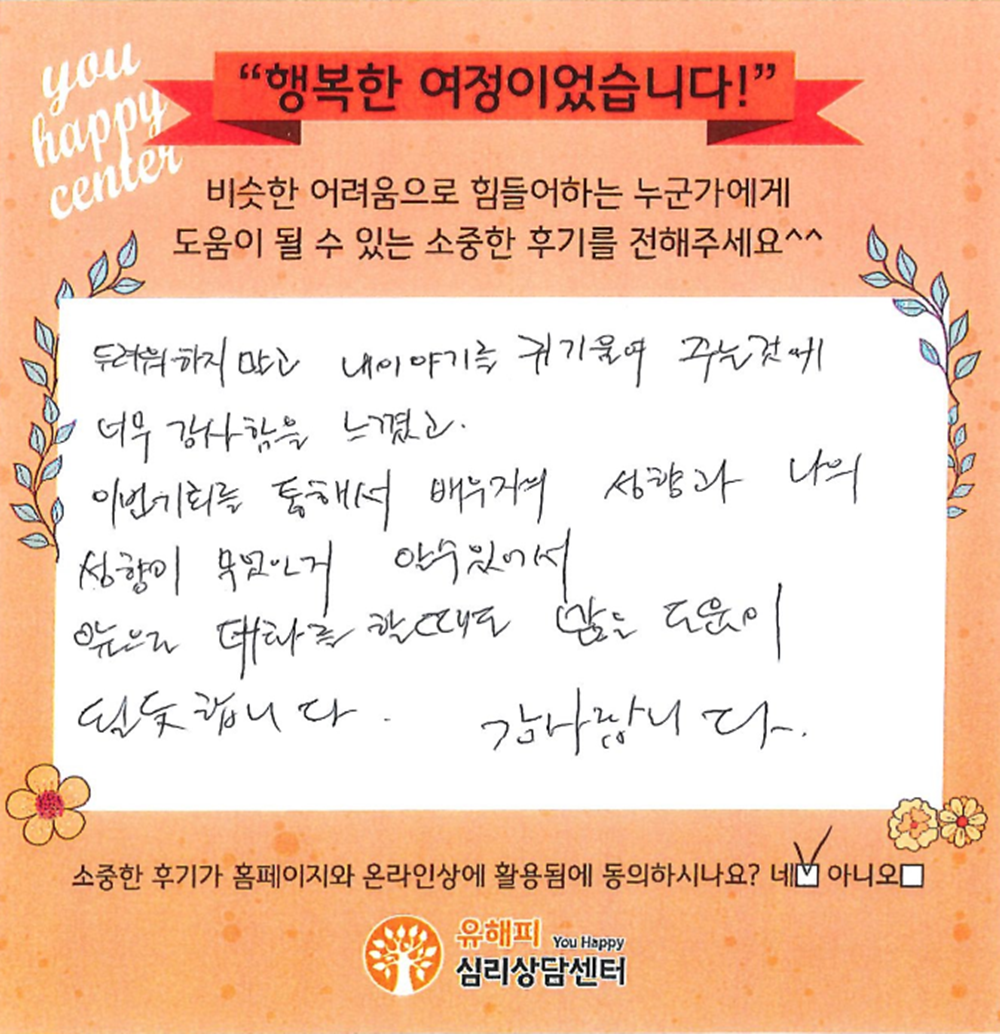 you
happy
center
“행복한 여정이었습니다!”
비슷한 어려움으로 힘들어하는 누군가에게
도움이 될 수 있는 소중한 후기를 전해주세요^^
두려워하지 말고 내이야기를 귀기울여 주는것에
너무 감사함을 느꼈고.
이번기회를 통해서 배우자의 성향과 나의
성향이 무엇인지 알수있어서
앞으로 대화를 할때도 많은 도움이
될듯합니다. 감사합니다.
소중한 후기가 홈페이지와 온라인상에 활용됨에 동의하시나요? 네 아니오
유해피 You Happy
심리상담센터